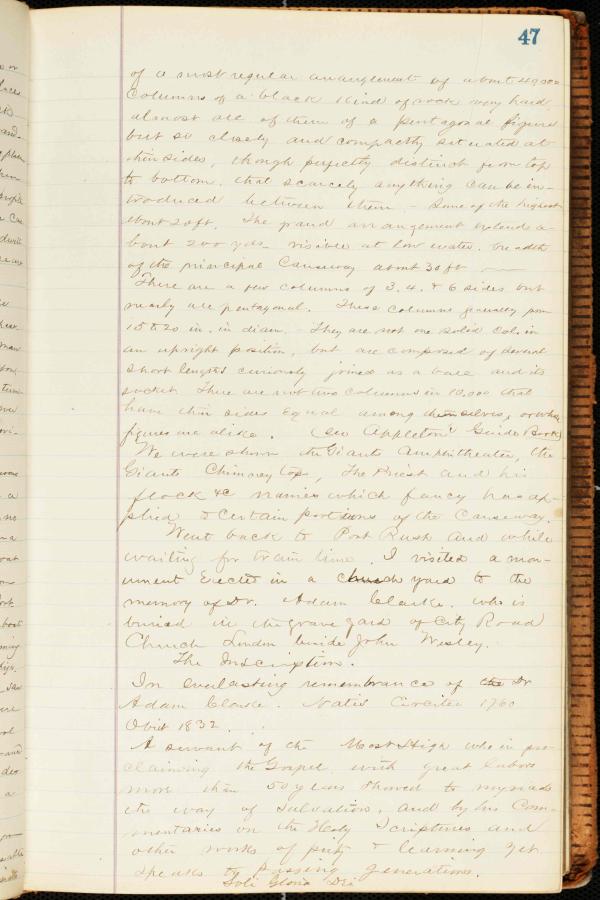 47
of a most regular arrangement of about 40,000
Columns of a black kind of rock very hard
almost all of them of a pentagonal figure
but so closely and compactly situated at
their sides, though perfectly distinct from top
to bottom, that scarcely anything can be in-
troduced between them - Some of the highest
about 20 ft. The grand arrangement extends a-
bout 200 yds. visible at low water. breadth
of the principal Causeway about 30 ft
There are a few columns of 3, 4, & 6 sides but
nearly all pentagonal. These columns generally from
15 to 20 in. in diam. They are not one solid col. in
an upright position, but are composed of several
short lengths curiously joined as a base and its
socket. There are not two columns in 10,000 that
have their sides Equal among themselves, or whose
figures are alike. (see Appleton's Guide Book)
We were shown the Giants Amphitheater, the
Giants Chimney tops, The Priest and his
flock &c names which fancy has ap-
plied to certain portions of the Causeway.
Went back to Port Rush and while
waiting for train time, I visited a mon-
ument Erected in a church yard to the
memory of Dr. Adam Clarke. who is
buried in the grave yard of City Road
Church London beside John Wesley.
The Inscription.
In everlasting remembrance of the Dr
Adam Clarke. Natis Circiter 1760
Obiit 1832.
A servant of the Most High who in pro-
claiming the Gospel with great labors
more than 50 years showed to myriads
the way of Salvation, and by his Com-
mentaries on the Holy Scriptures and
other works of piety & learning yet
speaks to passing generations.
Soli Gloria Deo